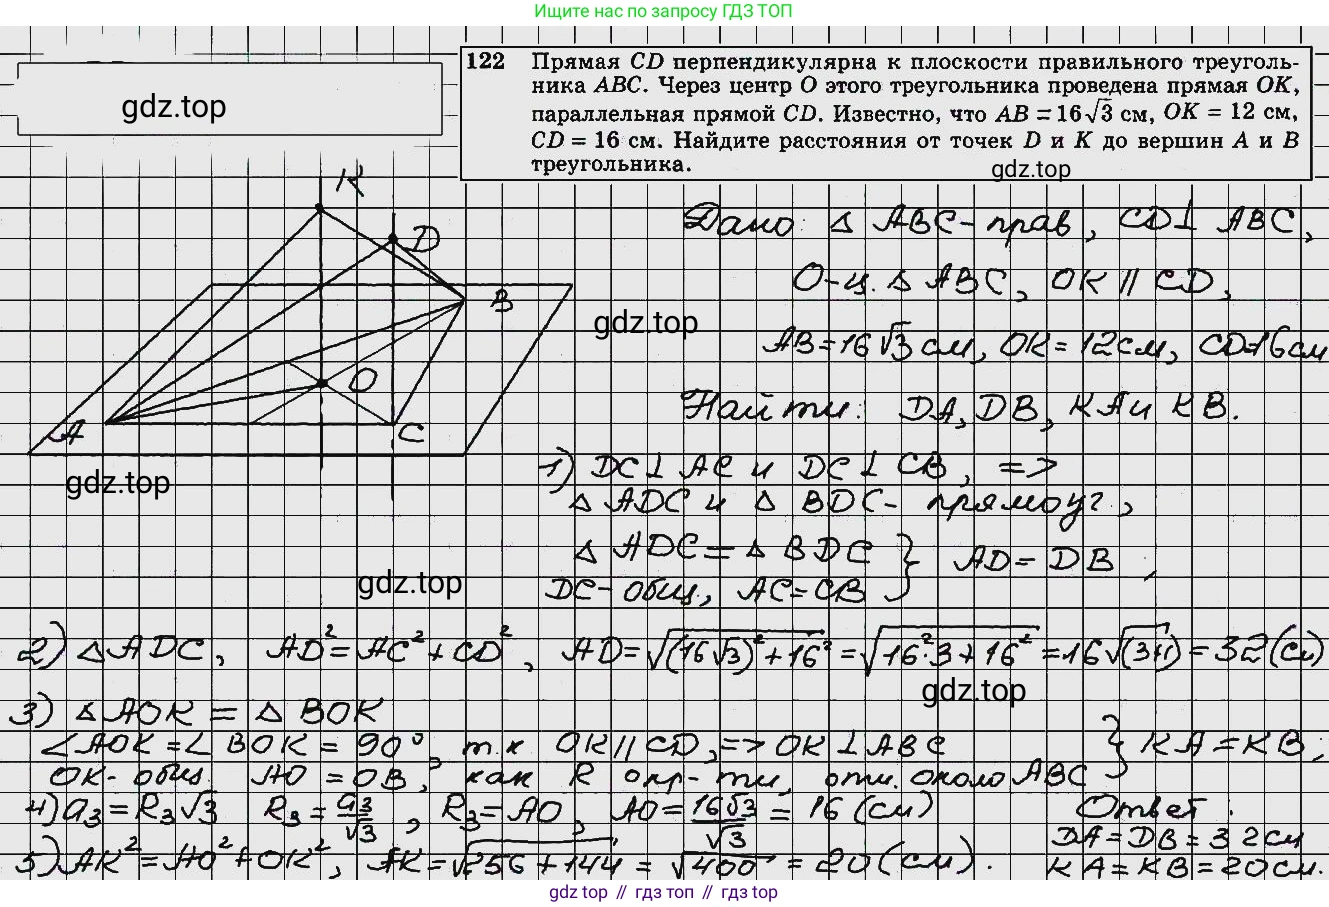 Ищите нас по запросу ГДЗ ТОП
gdz.top
122 Прямая CD перпендикулярна к плоскости правильного треуголь-
ника ABC. Через центр O этого треугольника проведена прямая OK,
параллельная прямой CD. Известно, что AB = 16√3 см, OK = 12 см,
CD = 16 см. Найдите расстояния от точек D и K до вершин A и B
треугольника.
gdz.top
K
D
B
O
A
C
gdz.top
gdz.top
gdz.top
Дано: Δ ABC - прав, CD⊥ ABC,
O-ц. Δ ABC, OK || CD,
AB=16√3 см, OK=12см, CD=16см
Найти: DA, DB, KA и KB.
1) DC⊥AC и DC⊥CB, =>
Δ ADC и Δ BDC - прямоуг,
Δ ADC = Δ BDC } AD = DB,
DC - общ, AC=CB
2) Δ ADC, AD² = AC² + CD², AD=√((16√3)²+16²) = √(16²·3+16²) = 16√(3+1) = 32 (см)
gdz.top
3) Δ AOK = Δ BOK
∠AOK = ∠BOK = 90°, т.к OK || CD, => OK⊥ABC } KA = KB;
OK - общ. AO = OB, как R окр-ти, опи. около ABC
4) a₃ = R₃√3 R₃ = a₃/√3, R₃ = AO, AO = 16√3/√3 = 16 (см)
5) AK² = AO² + OK², AK = √256+144 = √400 = 20 (см).
Ответ:
DA = DB = 32 см
KA = KB = 20 см.
gdz top // гдз топ // gdz top